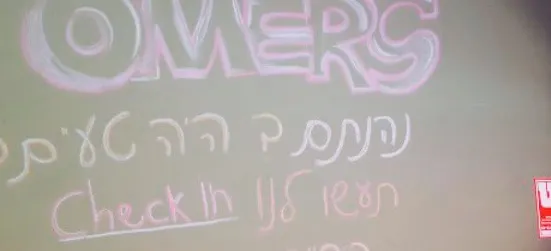 OMERS
נהנתם ב היה טעים
תעשו לנו Check in